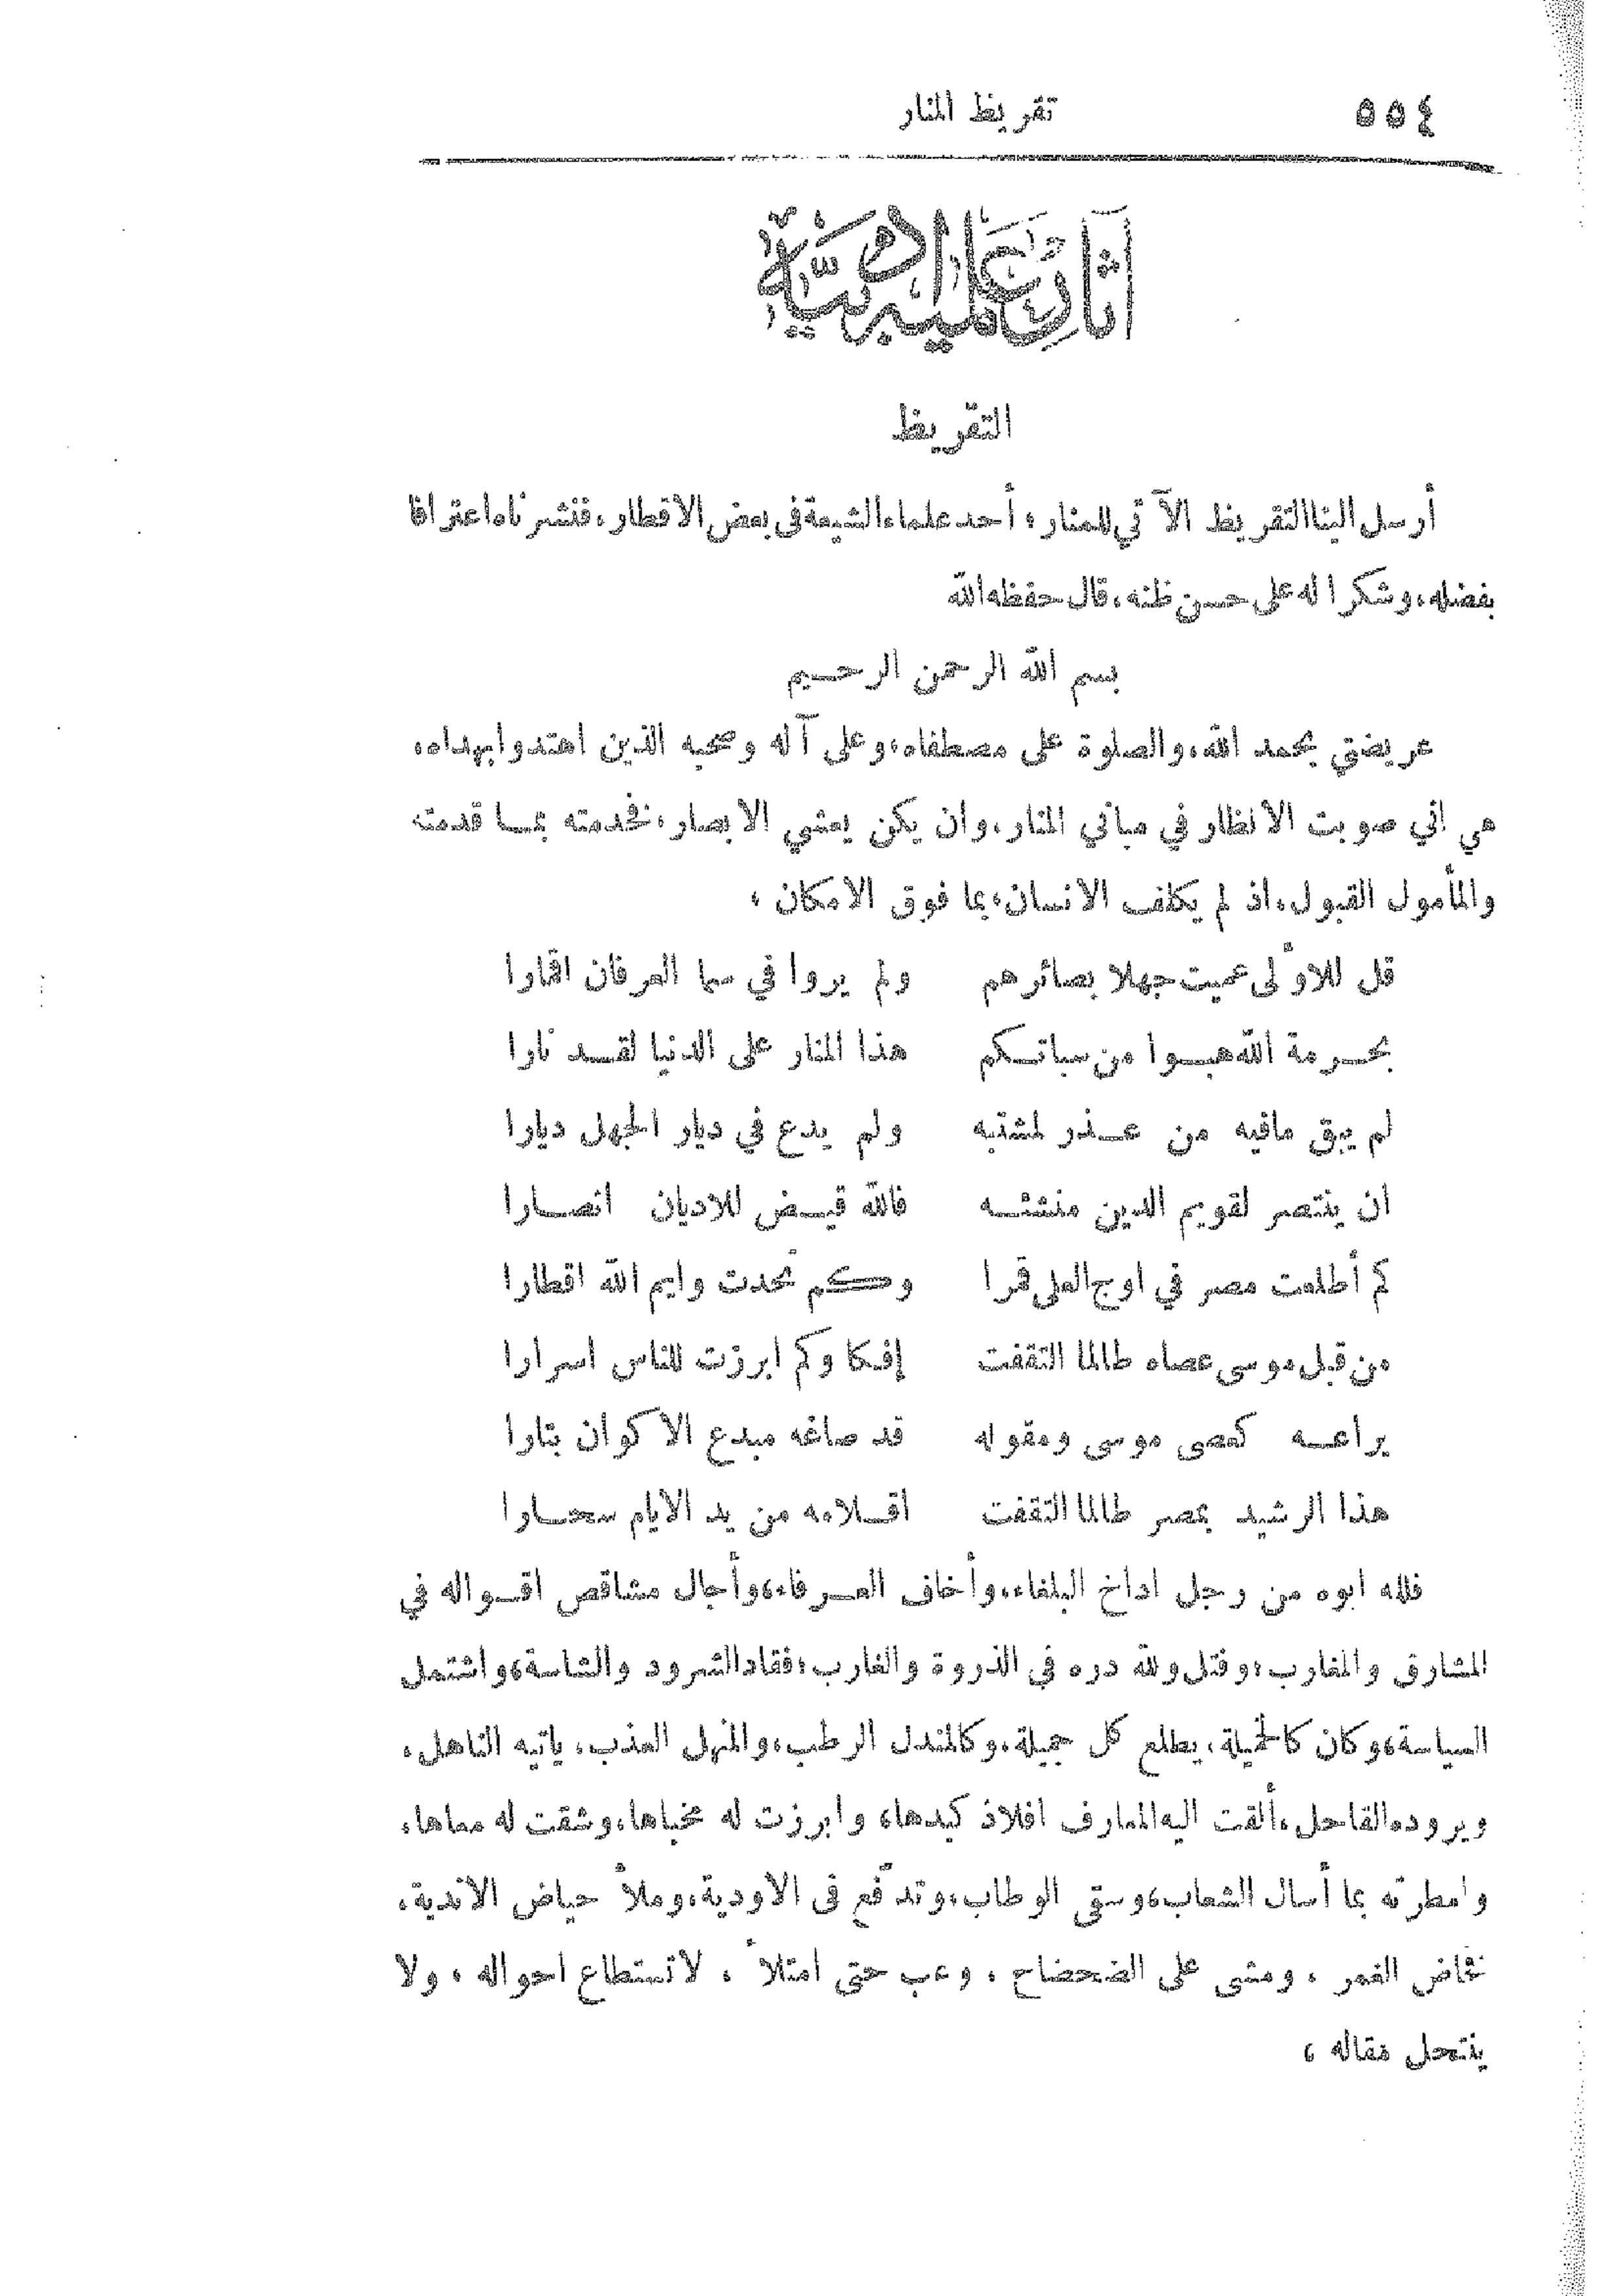 ٥٥٤ تقريظ المنار
آثار علمية أدبية
التقريظ
أرسل الينا التقريظ الآتي للمنار، أحد علماء الشيعة في بعض الاقطار، فنشرناه اعترافا
بفضله، وشكرا له على حسن ظنه، قال حفظه الله
بسم الله الرحمن الرحيم
عريضتي بحمد الله، والصلوة على مصطفاه، وعلى آله وصحبه الذين اهتدوا بهداه،
هي اني صوبت الانظار في مباني المنار، وان يكن يعشي الابصار، فخدمته بما قدمته
والمأمول القبول، اذ لم يكلف الانسان، بما فوق الامكان،
قل للاولى عميت جهلا بصائرهم ولم يروا في سما العرفان اقمارا
بحرمة الله هبوا من سباتكم هذا المنار على الدنيا لقد نارا
لم يبق مافيه من عذر لمشتبه ولم يدع في ديار الجهل ديارا
ان ينتصر لقويم الدين منشئه فالله قيض للاديان انصارا
كم أطلعت مصر في اوج العلى قمرا وكم تحدت وايم الله اقطارا
من قبل موسى عصاه طالما التقفت إفكا وكم ابرزت للناس اسرارا
يراعه كعصى موسى ومقوله قد صاغه مبدع الاكوان بتارا
هذا الرشيد بمصر طالما التقفت اقلامه من يد الايام سحارا
فلله ابوه من رجل اداخ البلغاء، وأخاف العرفاء، وأجال مشاقص اقواله في
المشارق والمغارب، وفتل ولله دره في الذروة والغارب، فقاد الشرود والشاسة، واشتمل
السياسة، وكان كالخميلة، يطلع كل جميلة، وكالمندل الرطب، والمنهل العذب، ياتيه الناهل،
ويروده القاحل، ألقت اليه المعارف افلاذ كبدها، وابرزت له مخباها، وشقت له معاها،
وامطرته بما أسال الشعاب، وسقى الوطاب، وتدفّع في الاودية، وملأ حياض الاندية،
نخاض الغمر، ومشى على الضحضاح، وعب حتى امتلأ، لا تستطاع احواله، ولا
ينتحل مقاله،